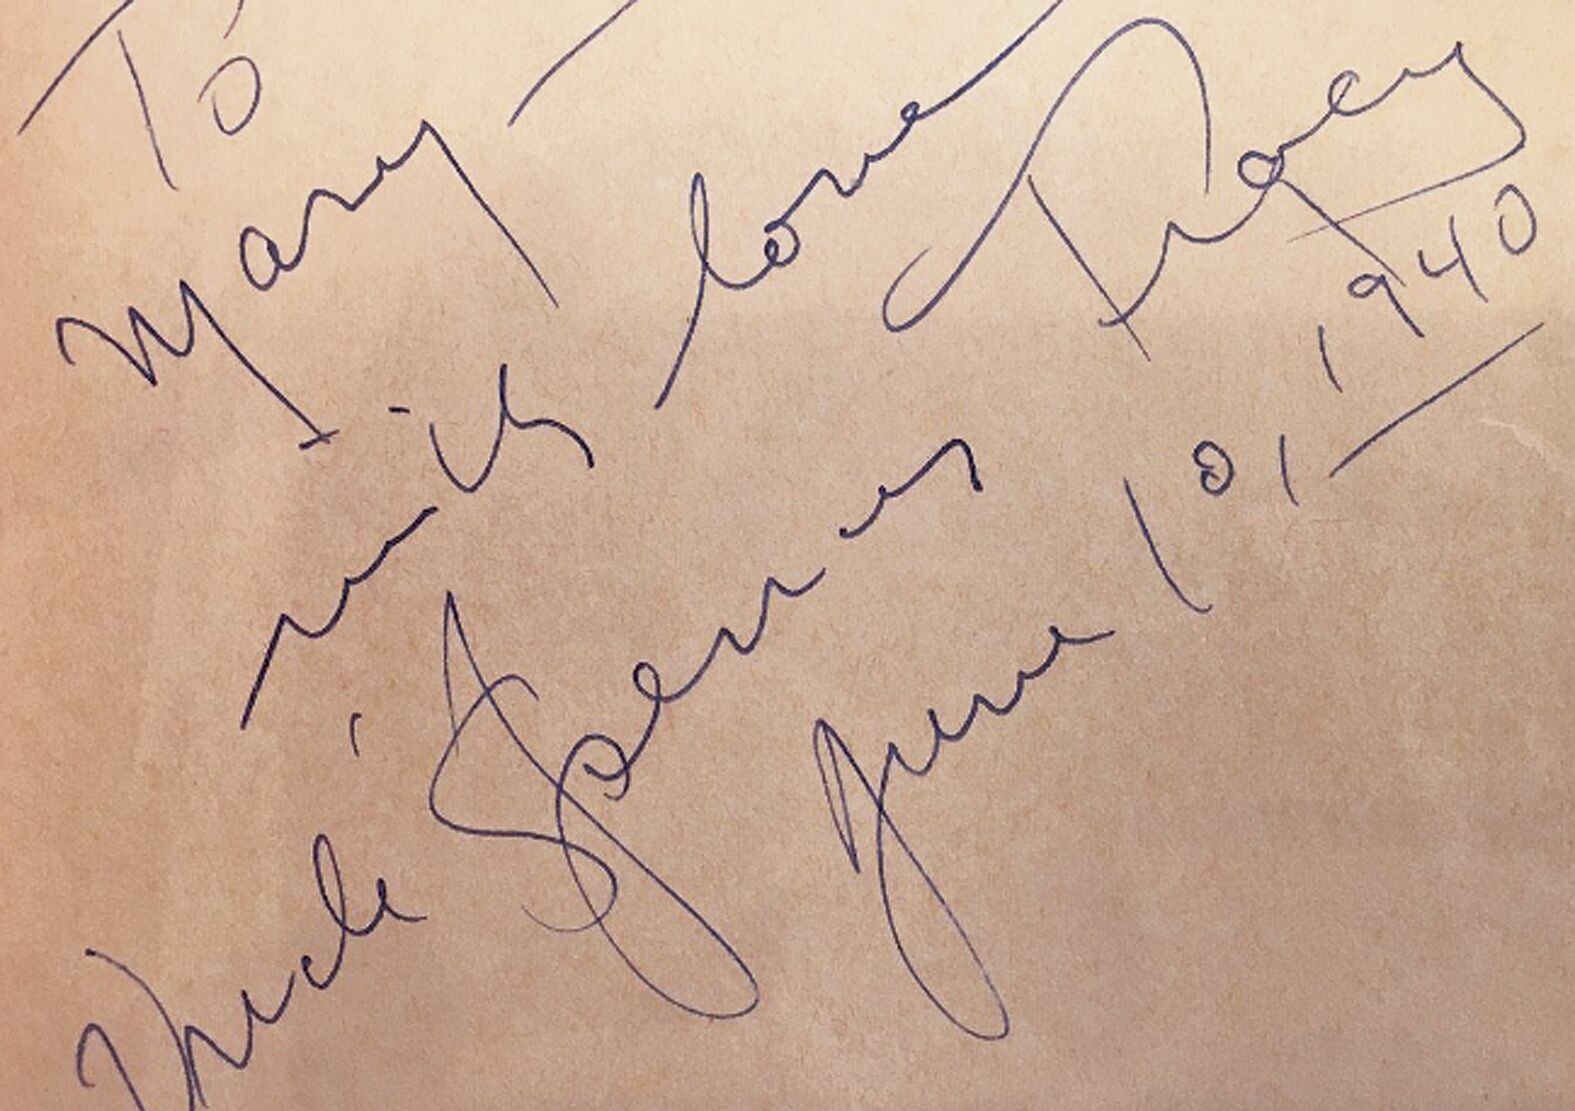 To
Mary -
with love
"Uncle" Spencer Tracy
June 10, 1940